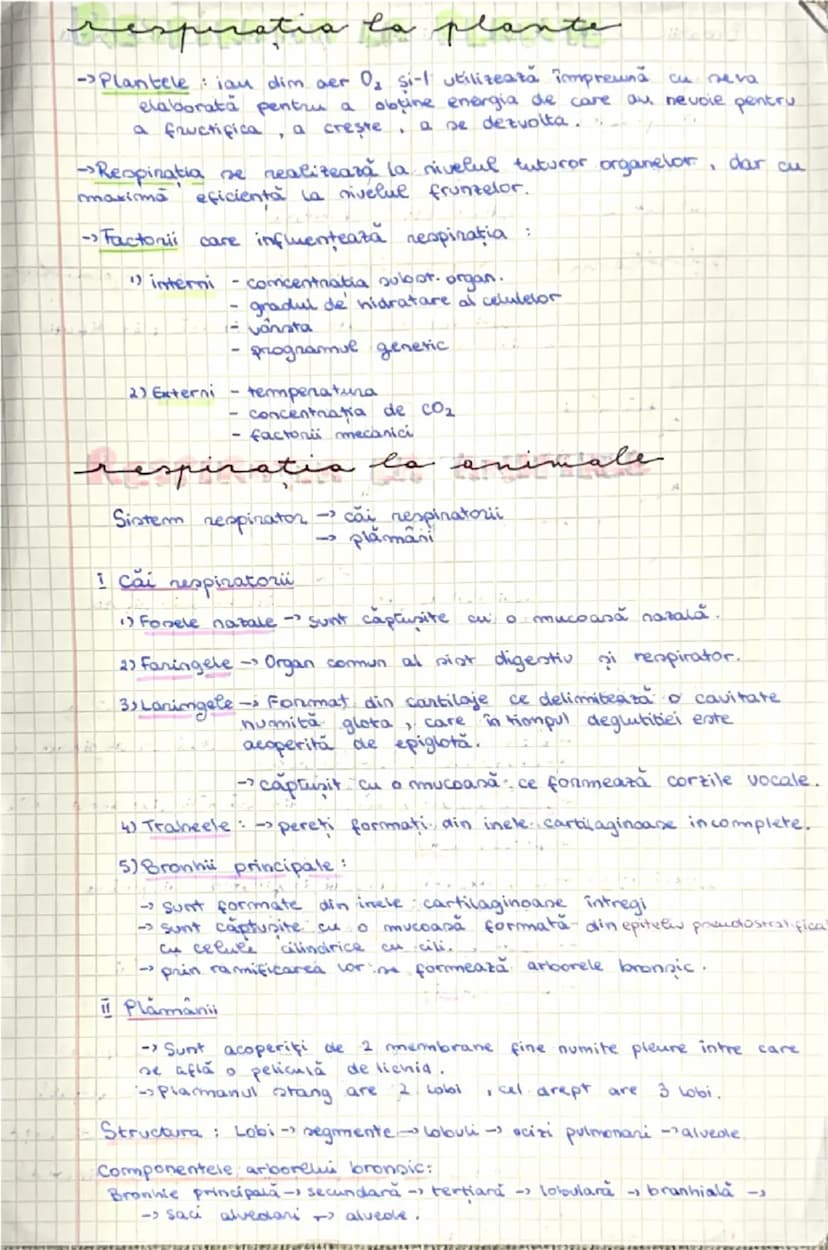 respirația la plante
-> Plantele : iau dim aer O2 și-l utilizează împreună cu seva
elaborată pentru a obține energia de care au nevoie pentru
a fructifica , a crește , a se dezvolta.
-> Respirația se realizează la nivelul tuturor organelor , dar cu
maximă eficiență la nivelul frunzelor.
-> Factorii care influențează respirația :
1) interni - concentratia subst. organ.
- gradul de hidratare al celulelor
- vârsta
- programul genetic
2) Externi - temperatura
- concentrația de CO2
- factorii mecanici
respirația la animale
Sistem respirator -> căi respiratorii
-> plămâni
I Căi respiratorii
1) Fosele nazale -> sunt căptușite cu o mucoasă nazală.
2) Faringele -> Organ comun al sist digestiv și respirator.
3) Laringele -> Format din cartilaje ce delimitează o cavitate
numită glota , care în timpul deglutitiei este
acoperită de epiglotă.
-> căptușit cu o mucoasă ce formează corzile vocale.
4) Traheele : -> pereți formați din inele cartilaginoase incomplete.
5) Bronhii principale :
-> sunt formate din inele cartilaginoase întregi
-> sunt căptușite cu o mucoasă formată din epiteliu pseudostratifica
cu celule cilindrice cu cili.
-> prin ramificarea lor se formează arborele bronșic.
II Plămânii
-> Sunt acoperiți de 2 membrane fine numite pleure între care
se află o peliculă de lichid.
-> Plămanul stang are 2 lobi , cel drept are 3 lobi.
Structura : Lobi -> segmente -> lobuli -> acizi pulmonari -> alveole
Componentele arborelui bronșic:
Bronhie principală -> secundară -> terțiară -> lobulară -> branhială ->
-> saci alveolari -> alveole.